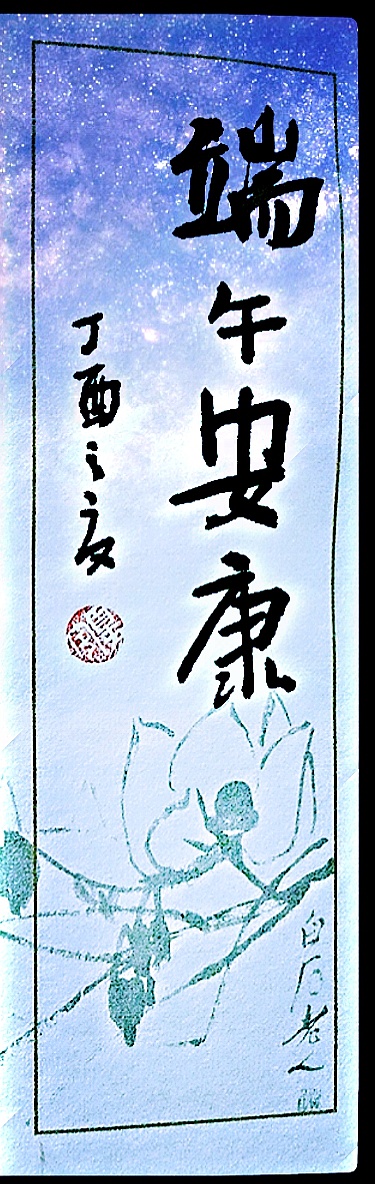 端午安康
丁酉之夏
白石老人